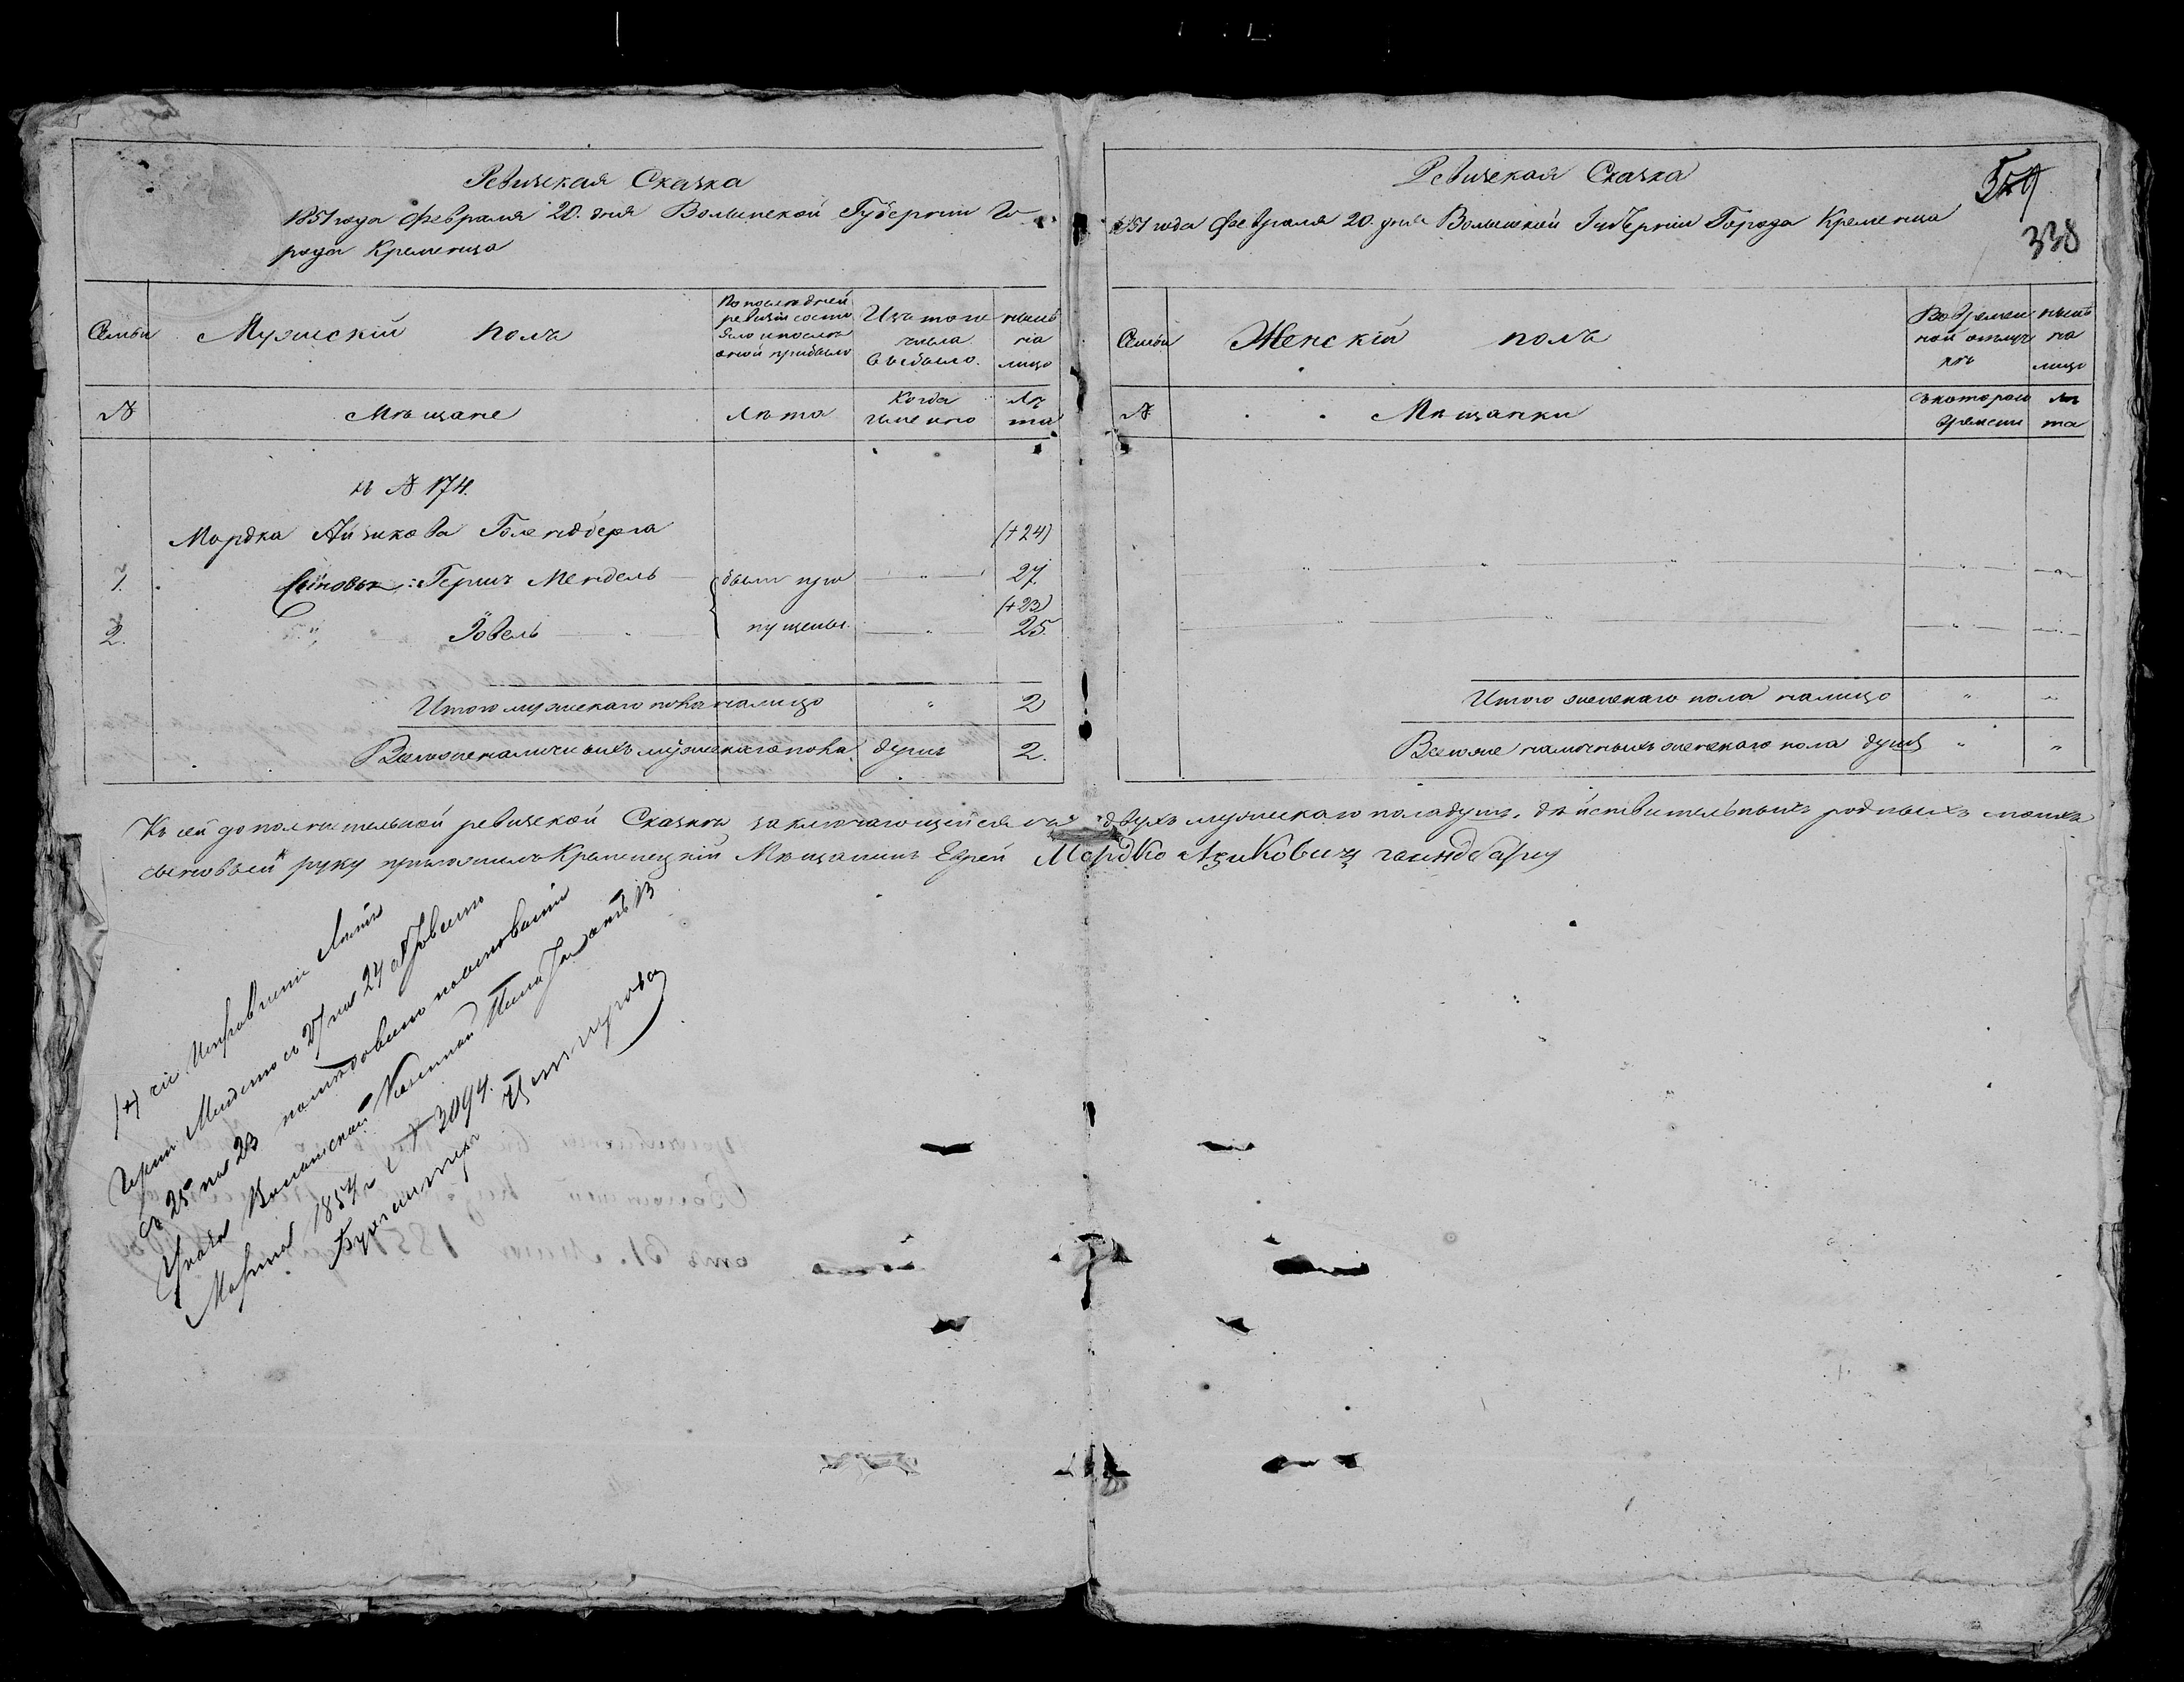 Ревизская Сказка
1851 года февраля 20. дня Волынской Губернии Го
рода Кременца
Семьи
Мужский полъ
По последней
ревизіи состо
яло и после
оной прибыло
Изъ того
числа
выбыло.
ныне
на
лицо
№
Мѣщане
Лѣта
Когда
именно
Лѣ
та
къ № 174.
Мордка АйзиковаГолендберга
(+24)
1. Сыновья: Гершъ Мендель были про " 27.
(+23)
2. " Іовель " пущены. " 25.
Итого мужескаго пола налицо " 2
Всего же наличныхъ мужескаго пола душъ 2.
Ревизская Сказка
1851 года Февраля 20. дня Волынской Губерніи Города Кременца
338
Семьи
Женскій полъ
Во времен
ной отлуч
кѣ
ныне
на
лицо
№
Мѣщанки
съ котораго
времени
лѣ
та
Итого женскаго пола налицо " "
Всего же наличныхъ женскаго пола душъ " "
Къ сей дополнительной ревизской Сказки заключающейся изъ двухъ мужескаго пола душъ, действительныхъ родныхъ моихъ
сыновьей руку приложилъ Кременецкій Мѣщанинъ Еврей Мордко
(+) сіе Исправленіе Летъ
Герш Менделю съ 27 на 24 Іовелю
съ 25 на 23 последовало на основаніи
Указа Волынской Казенной Палаты отъ 13
Марта 1854 г. № 3094.
Бухгалтеръ